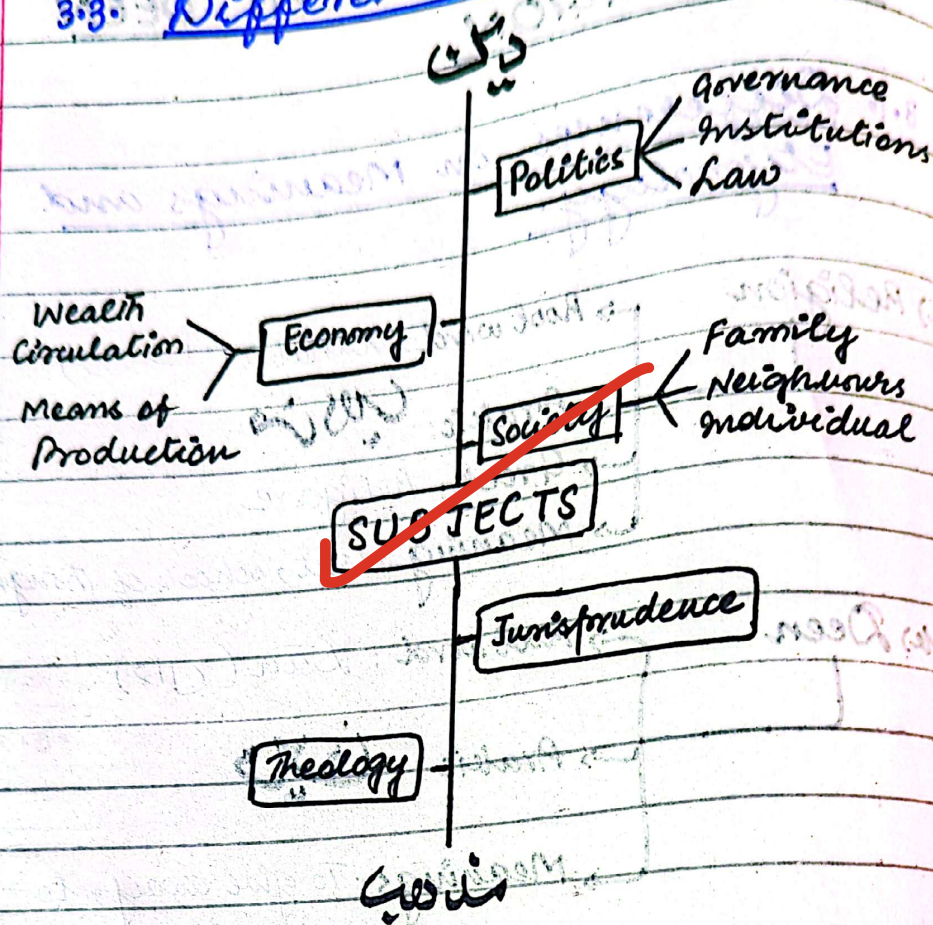 3.3. Differen
دین
Politics
Governance
Institutions
Law
Economy
Wealth
Circulation
Means of
Production
Society
Family
Neighbours
Individual
SUBJECTS
Jurisprudence
Theology
مذہب